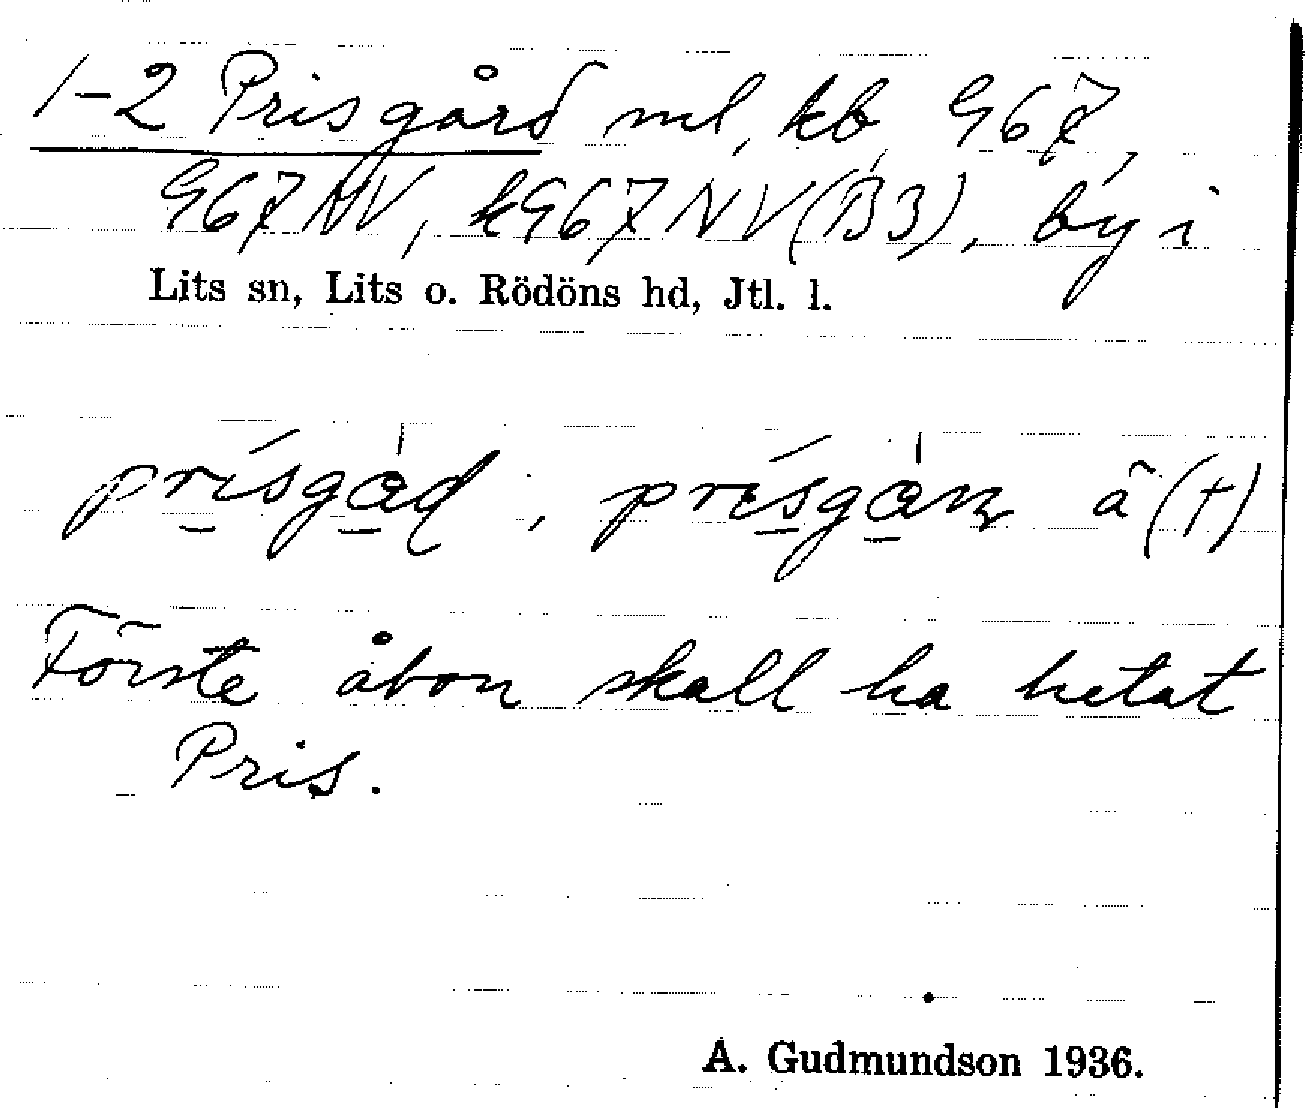 1-2 Prisgård ml, kb 967,
967 NV, k967 NV (B3), by i
Lits sn, Lits o. Rödöns hd, Jtl. l.
å (+)
Förste åbon skall ha hetat
Pris.
A. Gudmundson 1936.